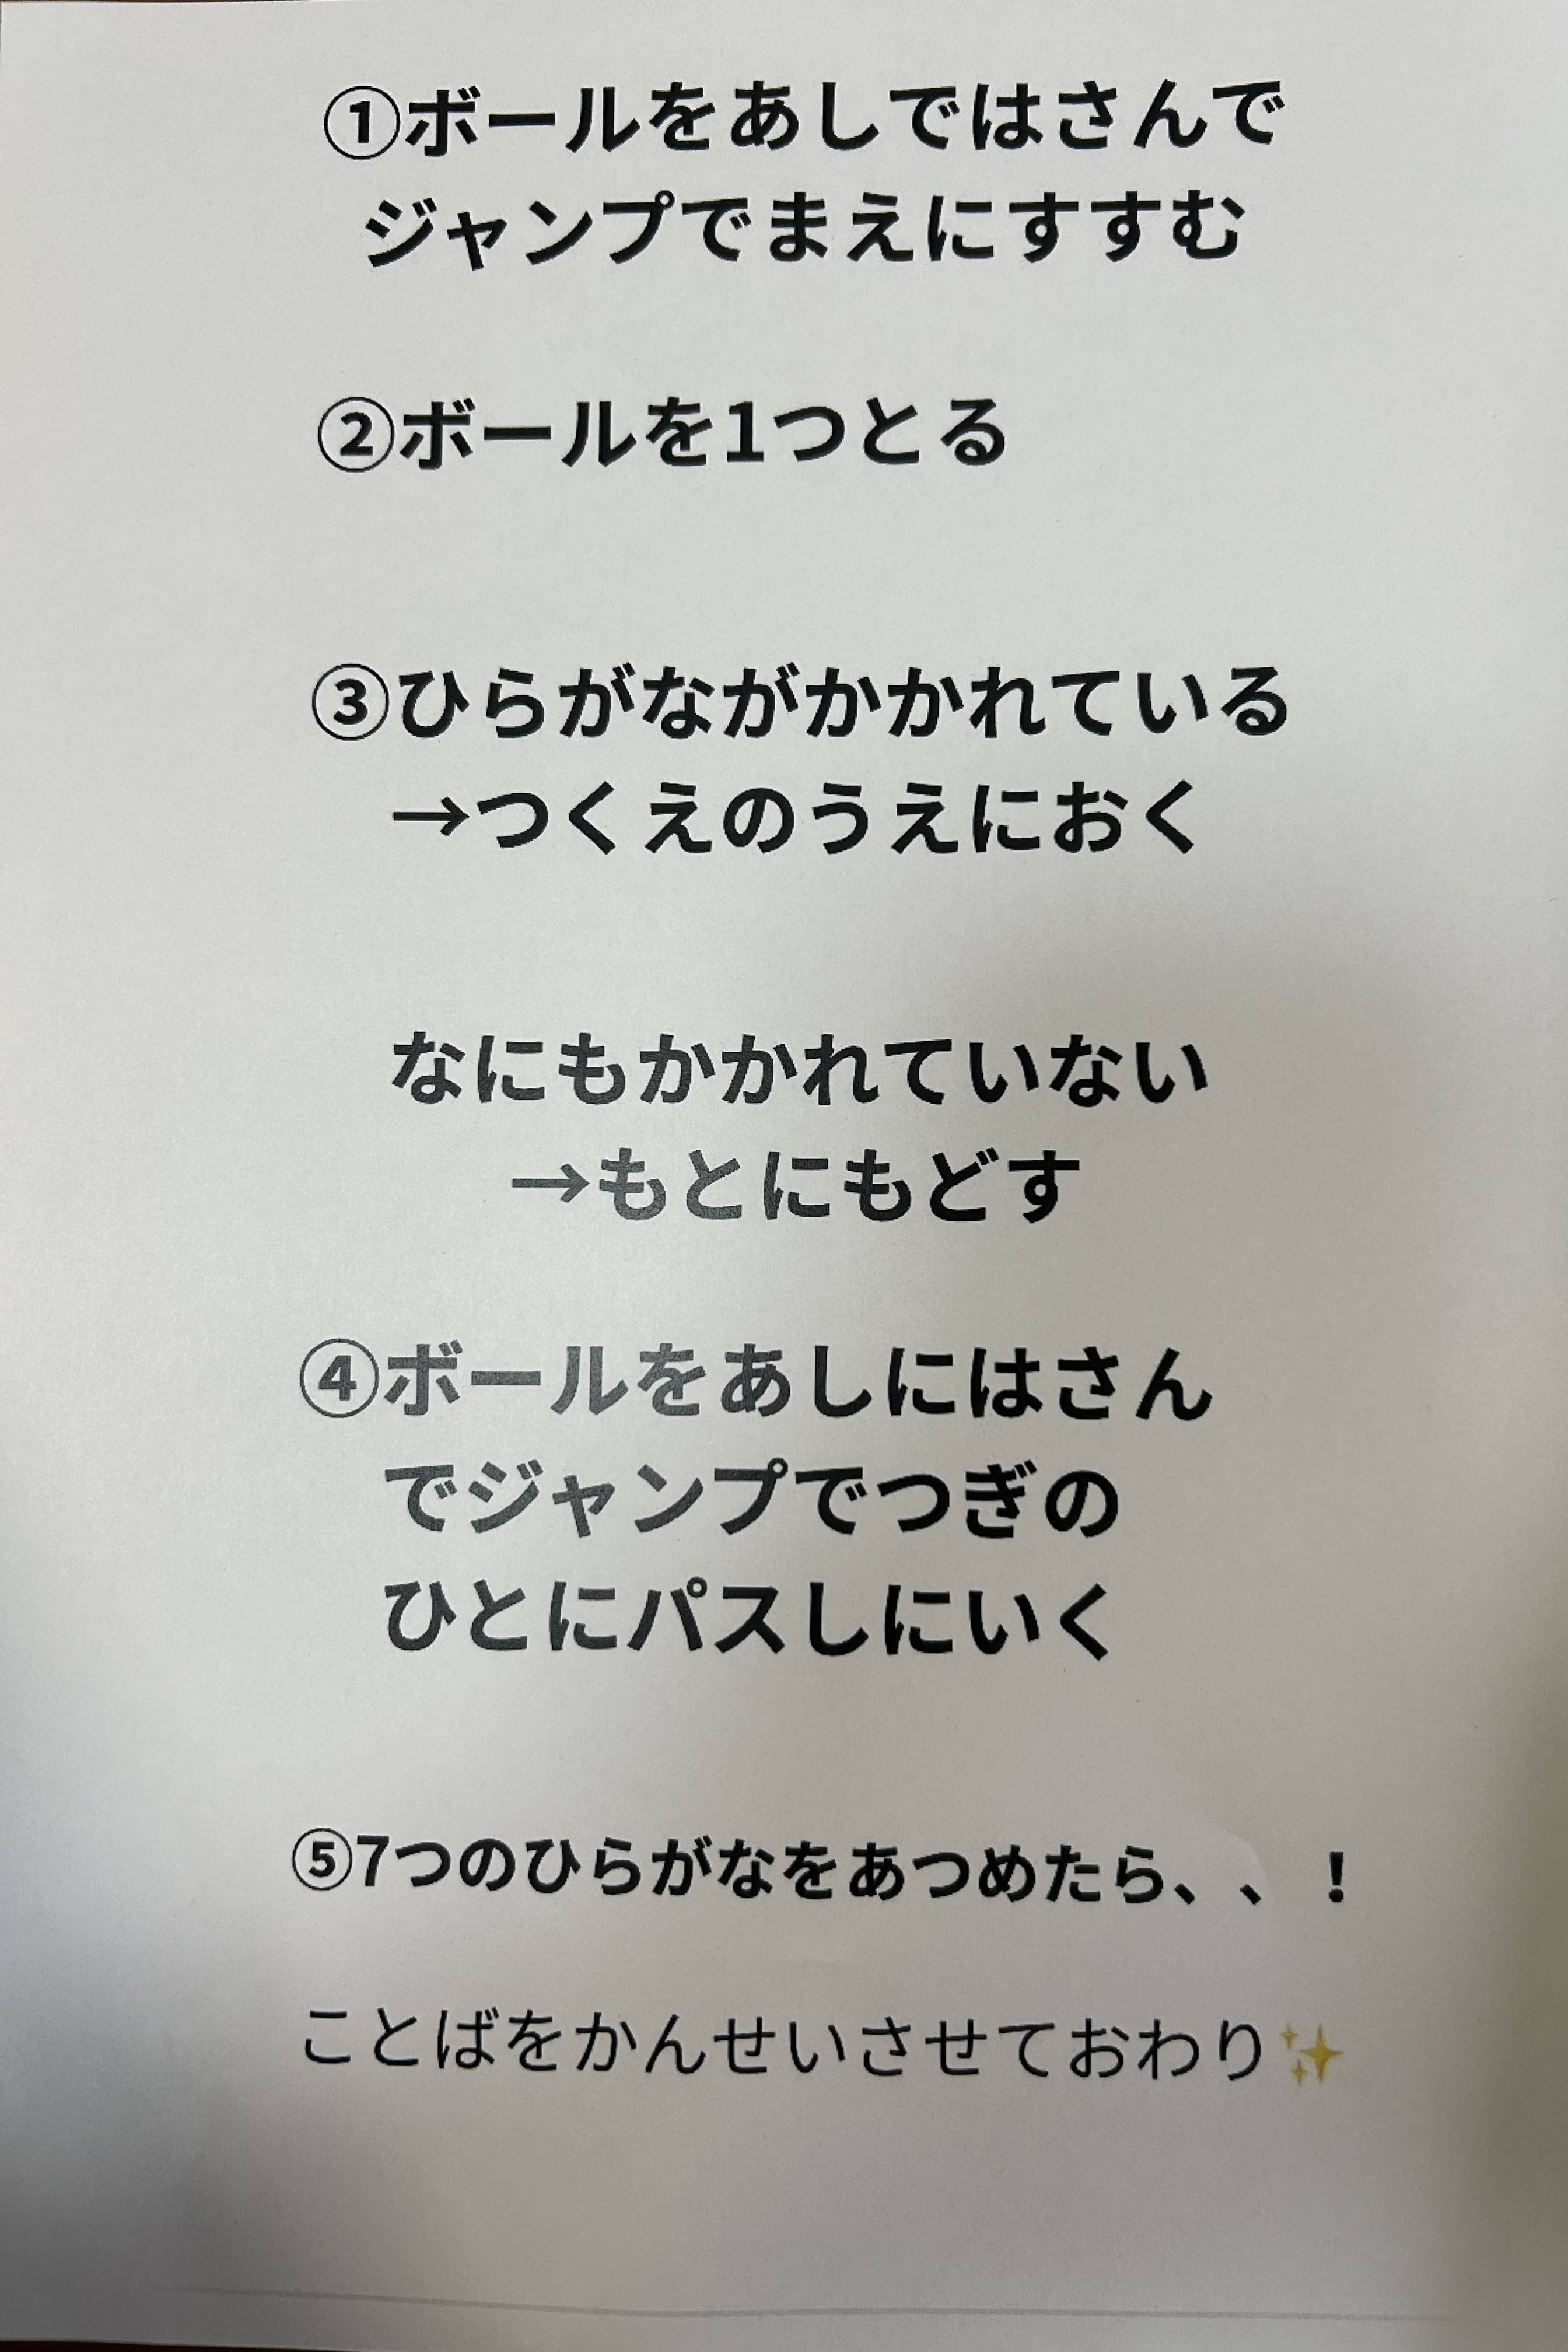 ①ボールをあしではさんで
ジャンプでまえにすすむ
②ボールを1つとる
③ひらがながかかれている
→つくえのうえにおく
なにもかかれていない
→もとにもどす
④ボールをあしにはさん
でジャンプでつぎの
ひとにパスしにいく
⑤7つのひらがなをあつめたら、、！
ことばをかんせいさせておわり✨